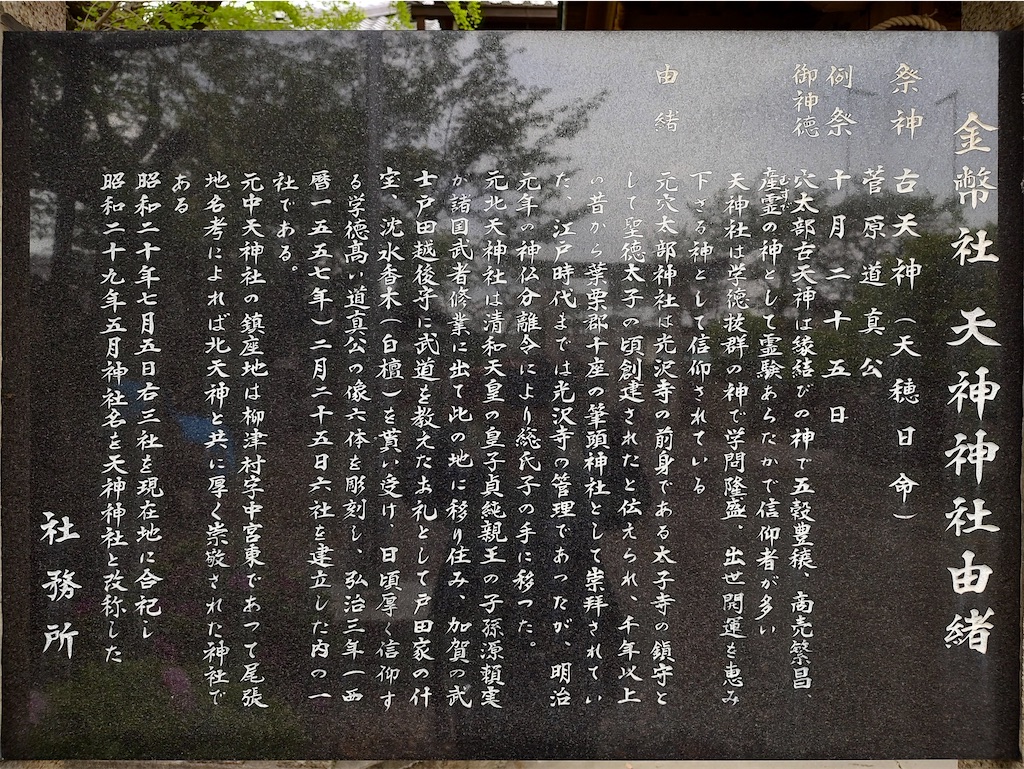 金幣社 天神神社由緒
祭神 古天神（天穂日命）
菅原道真公
例祭 十月二十五日
御神徳 穴太部古天神は縁結びの神で五穀豊穣、商売繁昌、
産霊の神として霊験あらたかで信仰者が多い
天神社は学徳抜群の神で学問隆盛、出世開運を恵み
下さる神として信仰されている
由緒 元穴太部神社は光沢寺の前身である太子寺の鎮守と
して聖徳太子の頃創建されたと伝えられ、千年以上
の昔から葉栗郡十座の筆頭神社として崇拜されてい
た、江戸時代までは光沢寺の管理であつたが、明治
元年の神仏分離令により総氏子の手に移つた。
元北天神社は清和天皇の皇子貞純親王の子孫源頼実
が諸国武者修業に出て此の地に移り住み、加賀の武
士戸田越後守に武道を教えたお礼として戸田家の什
宝、沈水香木（白檀）を貰い受け、日頃厚く信仰す
る学徳高い道真公の像六体を彫刻し、弘治三年（西
暦一五五七年）二月二十五日六社を建立した内の一
社である。
元中天神社の鎮座地は柳津村字中宮東であつて尾張
地名考によれば北天神と共に厚く崇敬された神社で
ある
昭和二十年七月五日右三社を現在地に合祀し
昭和二十九年五月神社名を天神神社と改称した
社務所